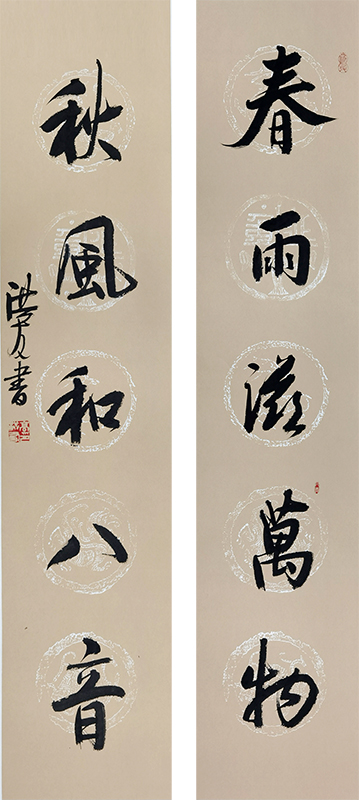 春雨滋萬物
秋風和八音
洪友書